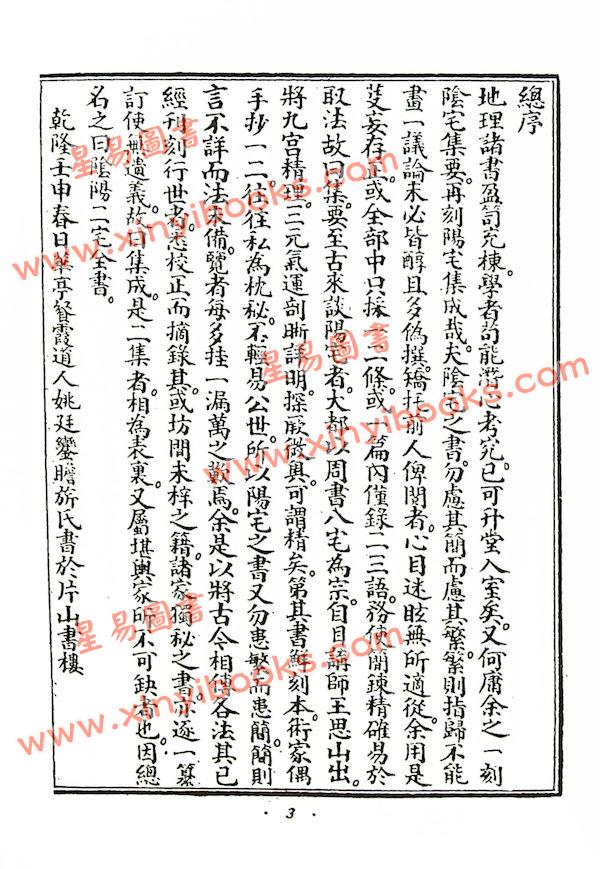 總序
地理諸書盈笥充棟學者苟能潛心考究已可升堂入室矣又何庸余之一刻
陰宅集要再刻陽宅集成哉夫陰宅之書勿慮其簡而慮其繁繁則指歸不能
畫一議論未必皆醇且多偽撰矯托前人俾閱者心目迷眩無所適從余用是
芟妄存正或全部中只採一二條或一篇內僅錄二三語務使簡鍊精確易於
取法故曰集要至古來談陽宅者大都以周書八宅為宗自目講師王思山出
將九宮精理三元氣運剖晰詳明探厥微奧可謂精矣第其書鮮刻本術家偶
手抄一二往往私為枕秘不輕易公世所以陽宅之書又勿患繁而患簡簡則
言不詳而法未備覽者每多挂一漏萬之歎焉余是以將古今相傳各法其已
經刊刻行世者悉校正而摘錄其或坊間未梓之籍諸家獨秘之書亦逐一纂
訂使無遺義故曰集成是二集者相為表裏又屬堪輿家所不可缺者也因總
名之曰陰陽二宅全書
乾隆壬申春日華亭餐霞道人姚廷鑾瞻旂氏書於片山書樓
星易圖書
www.xinyibooks.com
星易圖書
www.xinyibooks.com
星易圖書
www.xinyibooks.com
星易圖書
www.xinyibooks.com
· 3 ·